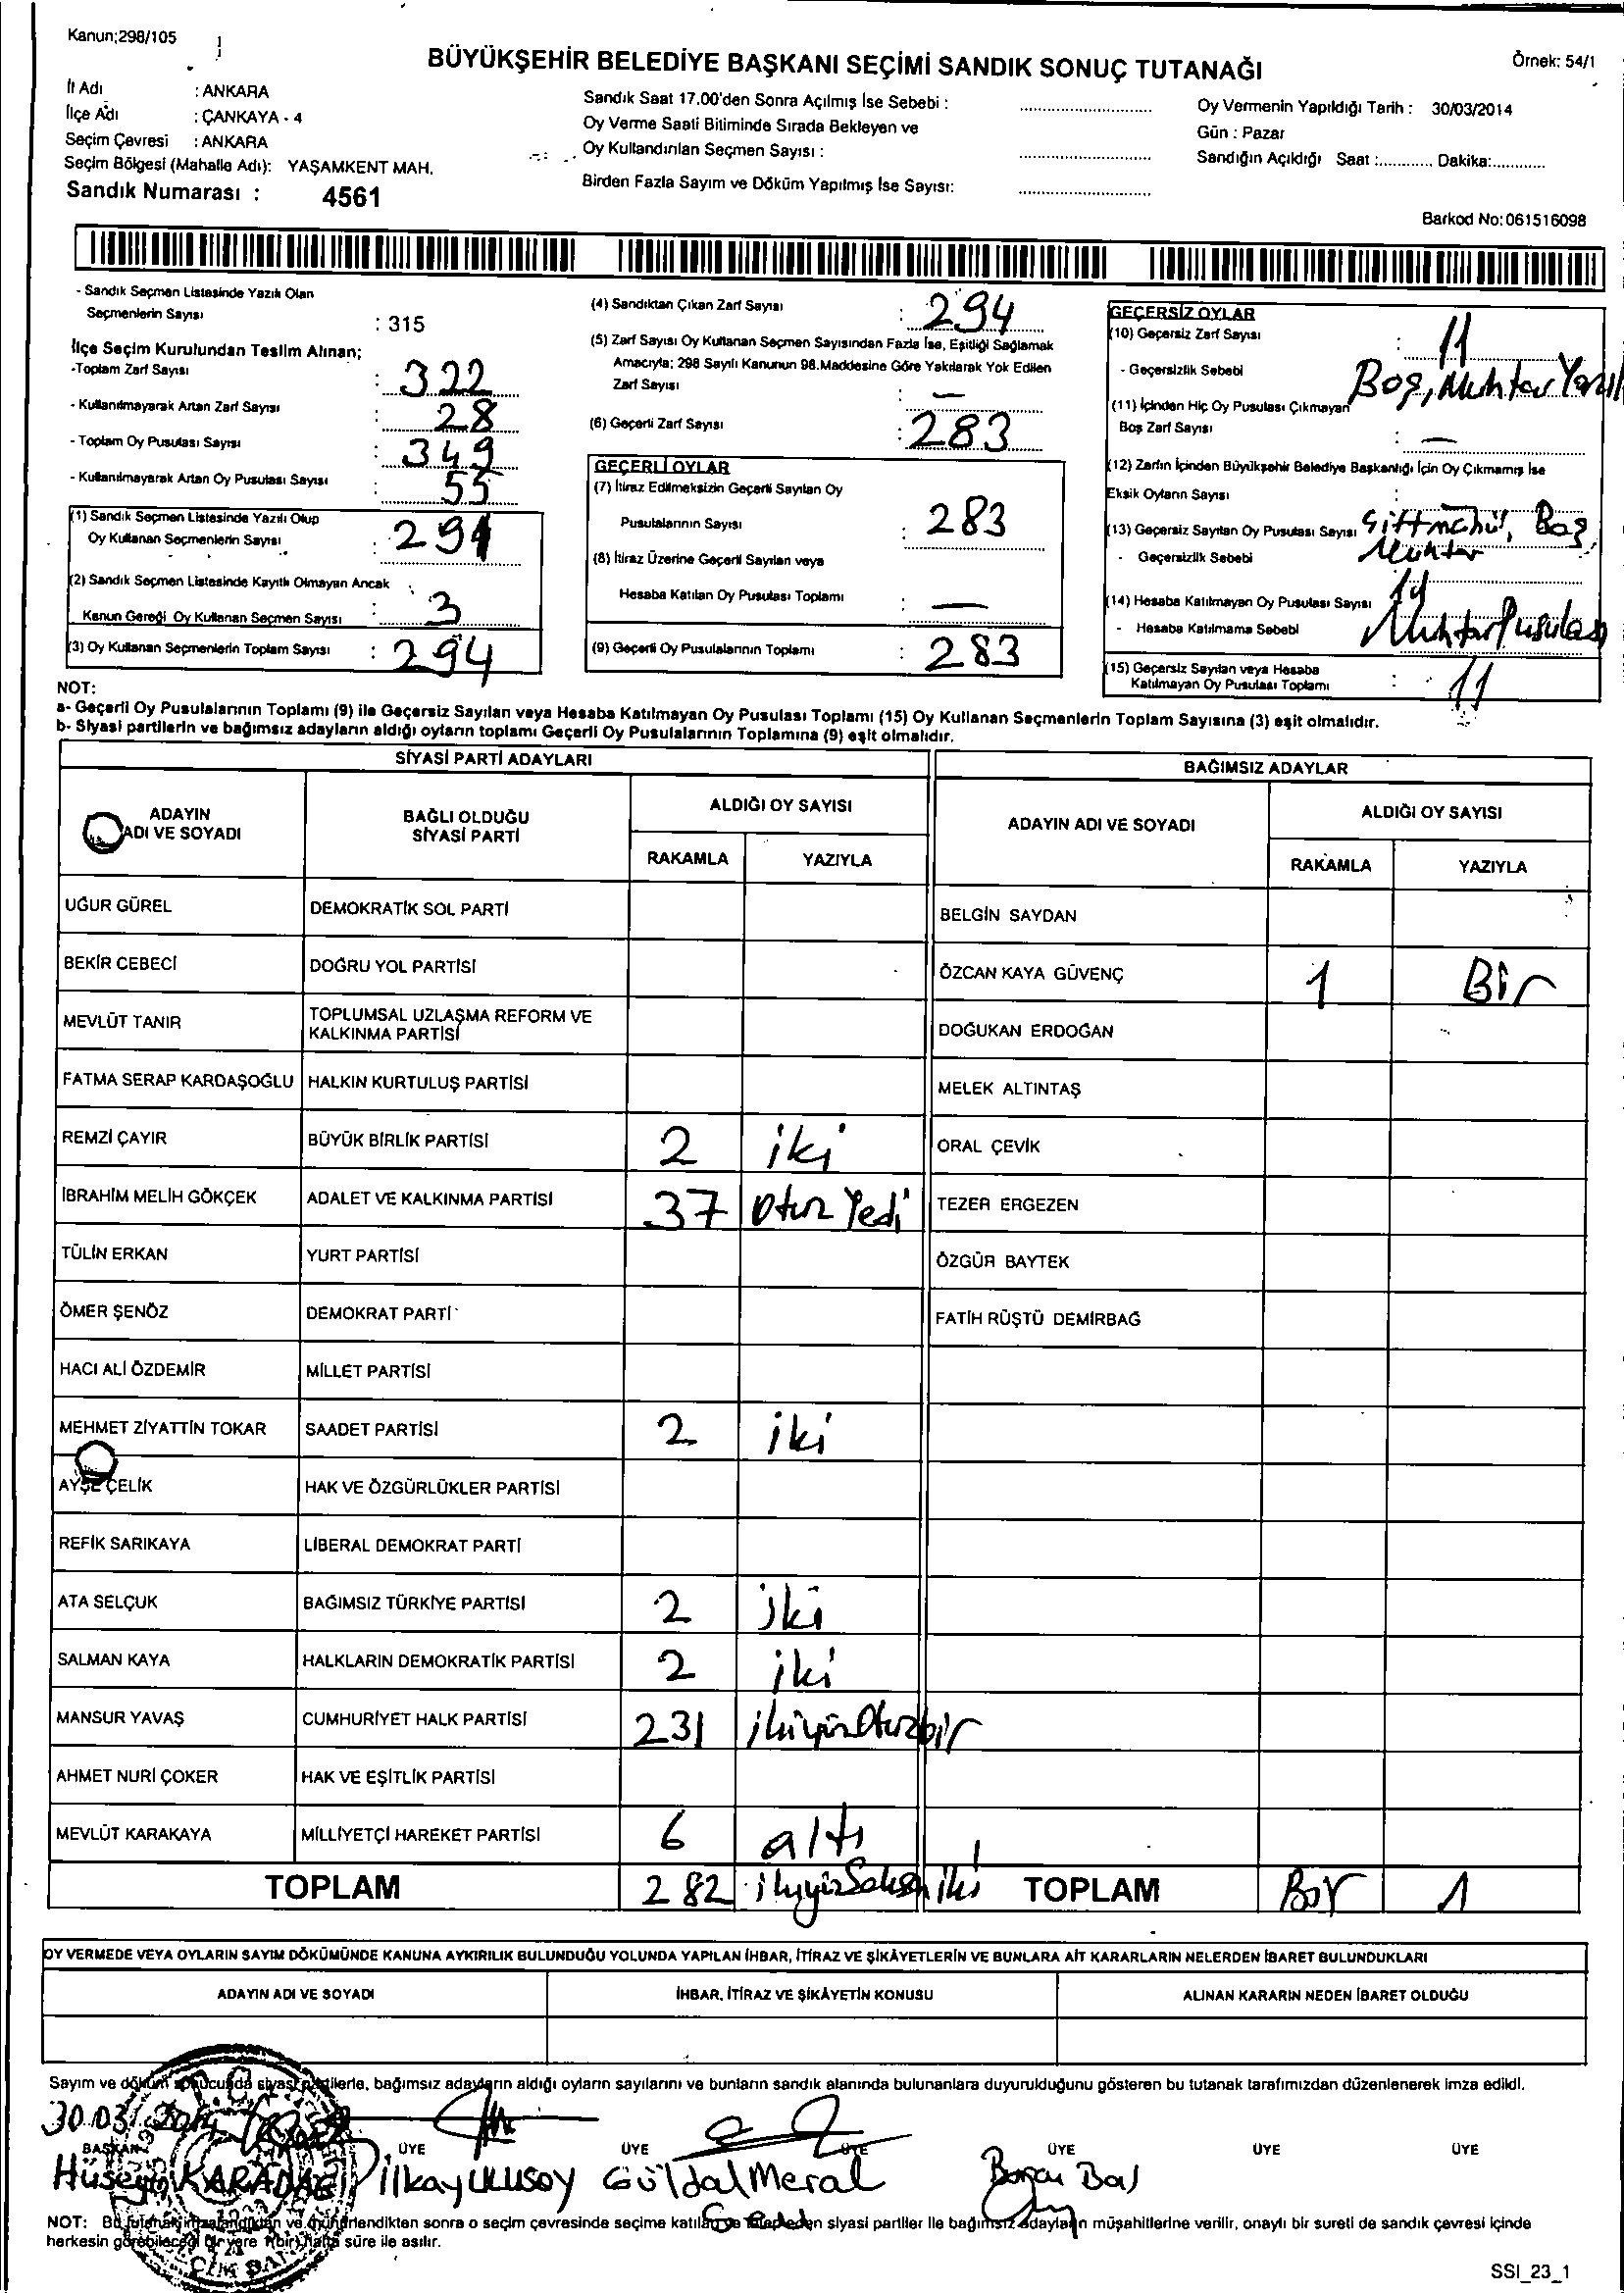 Kanun;298/105
BÜYÜKŞEHİR BELEDİYE BAŞKANI SEÇİMİ SANDIK SONUÇ TUTANAĞI
Örnek: 54/1
İl Adı : ANKARA
İlçe Adı : ÇANKAYA - 4
Seçim Çevresi : ANKARA
Seçim Bölgesi (Mahalle Adı): YAŞAMKENT MAH.
Sandık Numarası : 4561
Sandık Saat 17.00'den Sonra Açılmış İse Sebebi :
Oy Verme Saati Bitiminde Sırada Bekleyen ve
Oy Kullandırılan Seçmen Sayısı :
Birden Fazla Sayım ve Döküm Yapılmış İse Sayısı:
Oy Vermenin Yapıldığı Tarih : 30/03/2014
Gün : Pazar
Sandığın Açıldığı Saat :............ Dakika:............
Barkod No:061516098
- Sandık Seçmen Listesinde Yazılı Olan
Seçmenlerin Sayısı : 315
İlçe Seçim Kurulundan Teslim Alınan;
-Toplam Zarf Sayısı : 322
- Kullanılmayarak Artan Zarf Sayısı : 28
- Toplam Oy Pusulası Sayısı : 349
- Kullanılmayarak Artan Oy Pusulası Sayısı : 55
(1) Sandık Seçmen Listesinde Yazılı Olup
Oy Kullanan Seçmenlerin Sayısı : 291
(2) Sandık Seçmen Listesinde Kayıtlı Olmayan Ancak
Kanun Gereği Oy Kullanan Seçmen Sayısı : 3
(3) Oy Kullanan Seçmenlerin Toplam Sayısı : 294
(4) Sandıktan Çıkan Zarf Sayısı : 294
(5) Zarf Sayısı Oy Kullanan Seçmen Sayısından Fazla İse, Eşitliği Sağlamak
Amacıyla; 298 Sayılı Kanunun 98.Maddesine Göre Yakılarak Yok Edilen
Zarf Sayısı : —
(6) Geçerli Zarf Sayısı : 283
GEÇERLİ OYLAR
(7) İtiraz Edilmeksizin Geçerli Sayılan Oy
Pusulalarının Sayısı : 283
(8) İtiraz Üzerine Geçerli Sayılan veya
Hesaba Katılan Oy Pusulası Toplamı : —
(9) Geçerli Oy Pusulalarının Toplamı : 283
GEÇERSİZ OYLAR
(10) Geçersiz Zarf Sayısı : 11
- Geçersizlik Sebebi Boş, Muhtar
(11) İçinden Hiç Oy Pusulası Çıkmayan
Boş Zarf Sayısı : —
(12) Zarfın İçinden Büyükşehir Belediye Başkanlığı İçin Oy Çıkmamış İse
Eksik Oyların Sayısı :
(13) Geçersiz Sayılan Oy Pusulası Sayısı Boş,
- Geçersizlik Sebebi Muhtar
(14) Hesaba Katılmayan Oy Pusulası Sayısı
- Hesaba Katılmama Sebebi Muhtar Pusulası
(15) Geçersiz Sayılan veya Hesaba
Katılmayan Oy Pusulası Toplamı : 11
NOT:
a- Geçerli Oy Pusulalarının Toplamı (9) ile Geçersiz Sayılan veya Hesaba Katılmayan Oy Pusulası Toplamı (15) Oy Kullanan Seçmenlerin Toplam Sayısına (3) eşit olmalıdır.
b- Siyasi partilerin ve bağımsız adayların aldığı oyların toplamı Geçerli Oy Pusulalarının Toplamına (9) eşit olmalıdır.
SİYASİ PARTİ ADAYLARI
BAĞIMSIZ ADAYLAR
ADAYIN ADI VE SOYADI
BAĞLI OLDUĞU SİYASİ PARTİ
ALDIĞI OY SAYISI
RAKAMLA YAZIYLA
ADAYIN ADI VE SOYADI
ALDIĞI OY SAYISI
RAKAMLA YAZIYLA
UĞUR GÜREL DEMOKRATİK SOL PARTİ BELGİN SAYDAN
BEKİR CEBECİ DOĞRU YOL PARTİSİ ÖZCAN KAYA GÜVENÇ 1 Bir
MEVLÜT TANIR TOPLUMSAL UZLAŞMA REFORM VE KALKINMA PARTİSİ DOĞUKAN ERDOĞAN
FATMA SERAP KARDAŞOĞLU HALKIN KURTULUŞ PARTİSİ MELEK ALTINTAŞ
REMZİ ÇAYIR BÜYÜK BİRLİK PARTİSİ 2 iki ORAL ÇEVİK
İBRAHİM MELİH GÖKÇEK ADALET VE KALKINMA PARTİSİ 37 Otuz Yedi TEZER ERGEZEN
TÜLİN ERKAN YURT PARTİSİ ÖZGÜR BAYTEK
ÖMER ŞENÖZ DEMOKRAT PARTİ FATİH RÜŞTÜ DEMİRBAĞ
HACI ALİ ÖZDEMİR MİLLET PARTİSİ
MEHMET ZİYATTİN TOKAR SAADET PARTİSİ 2 iki
AYŞE ÇELİK HAK VE ÖZGÜRLÜKLER PARTİSİ
REFİK SARIKAYA LİBERAL DEMOKRAT PARTİ
ATA SELÇUK BAĞIMSIZ TÜRKİYE PARTİSİ 2 iki
SALMAN KAYA HALKLARIN DEMOKRATİK PARTİSİ 2 iki
MANSUR YAVAŞ CUMHURİYET HALK PARTİSİ 231 ikiyüzOtuzbir
AHMET NURİ ÇOKER HAK VE EŞİTLİK PARTİSİ
MEVLÜT KARAKAYA MİLLİYETÇİ HAREKET PARTİSİ 6 altı
TOPLAM 282 ikiyüzSeksen iki TOPLAM Bir 1
OY VERMEDE VEYA OYLARIN SAYIM DÖKÜMÜNDE KANUNA AYKIRILIK BULUNDUĞU YOLUNDA YAPILAN İHBAR, İTİRAZ VE ŞİKÂYETLERİN VE BUNLARA AİT KARARLARIN NELERDEN İBARET BULUNDUKLARI
ADAYIN ADI VE SOYADI İHBAR, İTİRAZ VE ŞİKÂYETİN KONUSU ALINAN KARARIN NEDEN İBARET OLDUĞU
Sayım ve döküm sonucunda siyasi partilerle, bağımsız adayların aldığı oyların sayılarını ve bunların sandık alanında bulunanlara duyurulduğunu gösteren bu tutanak tarafımızdan düzenlenerek imza edildi.
30.03.2014
BAŞKAN ÜYE ÜYE ÜYE ÜYE ÜYE ÜYE
Hüseyin KARADAĞ İlkay ULUSOY Güldal Meral
NOT: Bu tutanak imzalandıktan ve mühürlendikten sonra o seçim çevresinde seçime katılan ve talep eden siyasi partiler ile bağımsız adayların müşahitlerine verilir, onaylı bir sureti de sandık çevresi içinde
herkesin görebileceği bir yere 1(bir) hafta süre ile asılır.
SSI_23_1